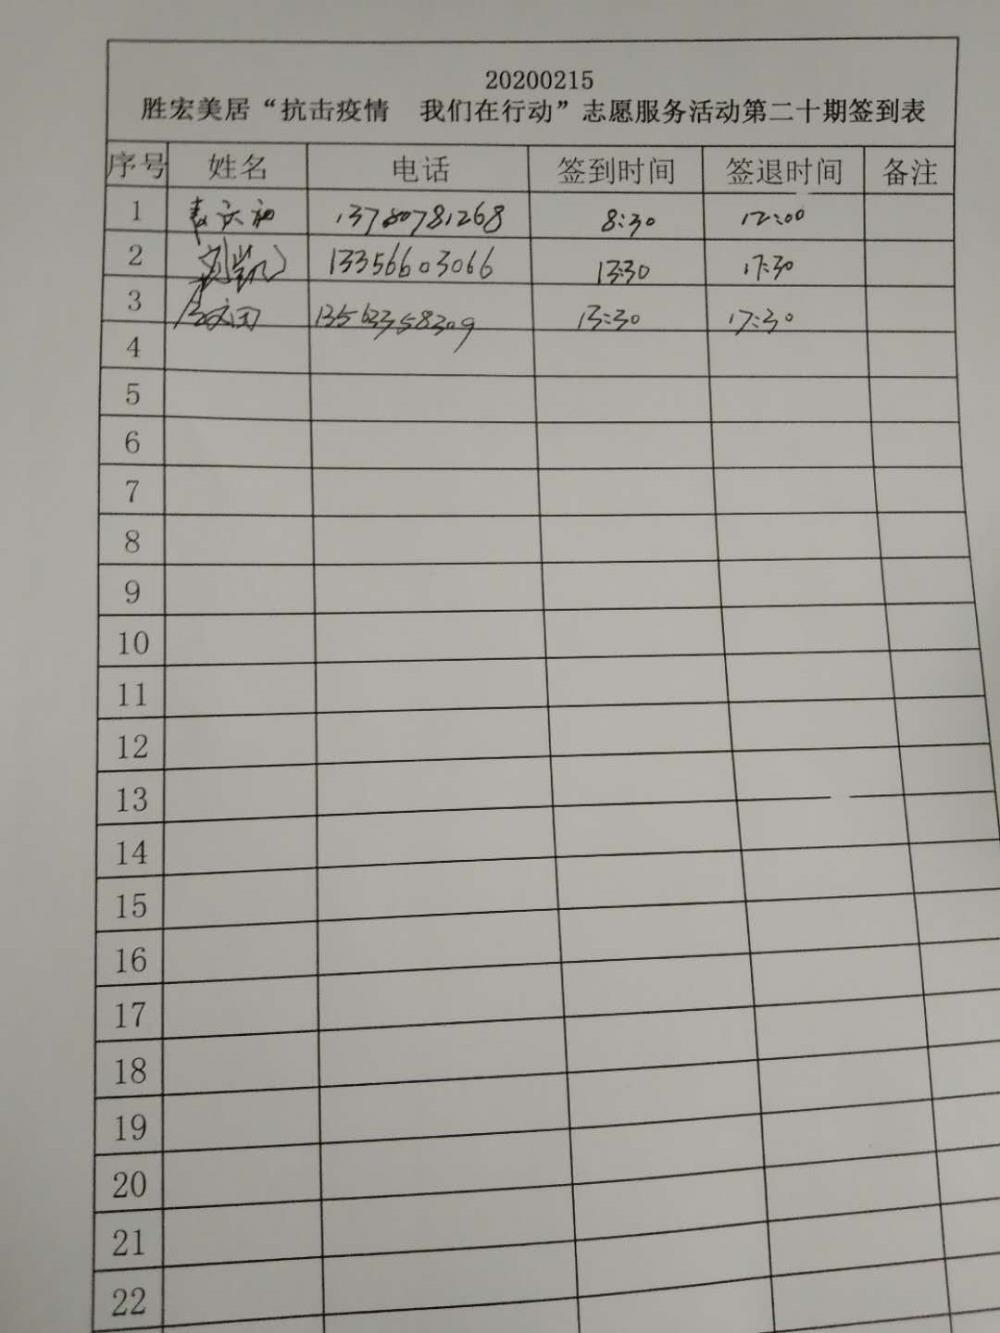 20200215
胜宏美居“抗击疫情 我们在行动”志愿服务活动第二十期签到表
序号 姓名 电话 签到时间 签退时间 备注
1 13780781268 8:30 12:00
2 刘凯 13356603066 13:30 17:30
3 13563358309 13:30 17:30
4
5
6
7
8
9
10
11
12
13
14
15
16
17
18
19
20
21
22